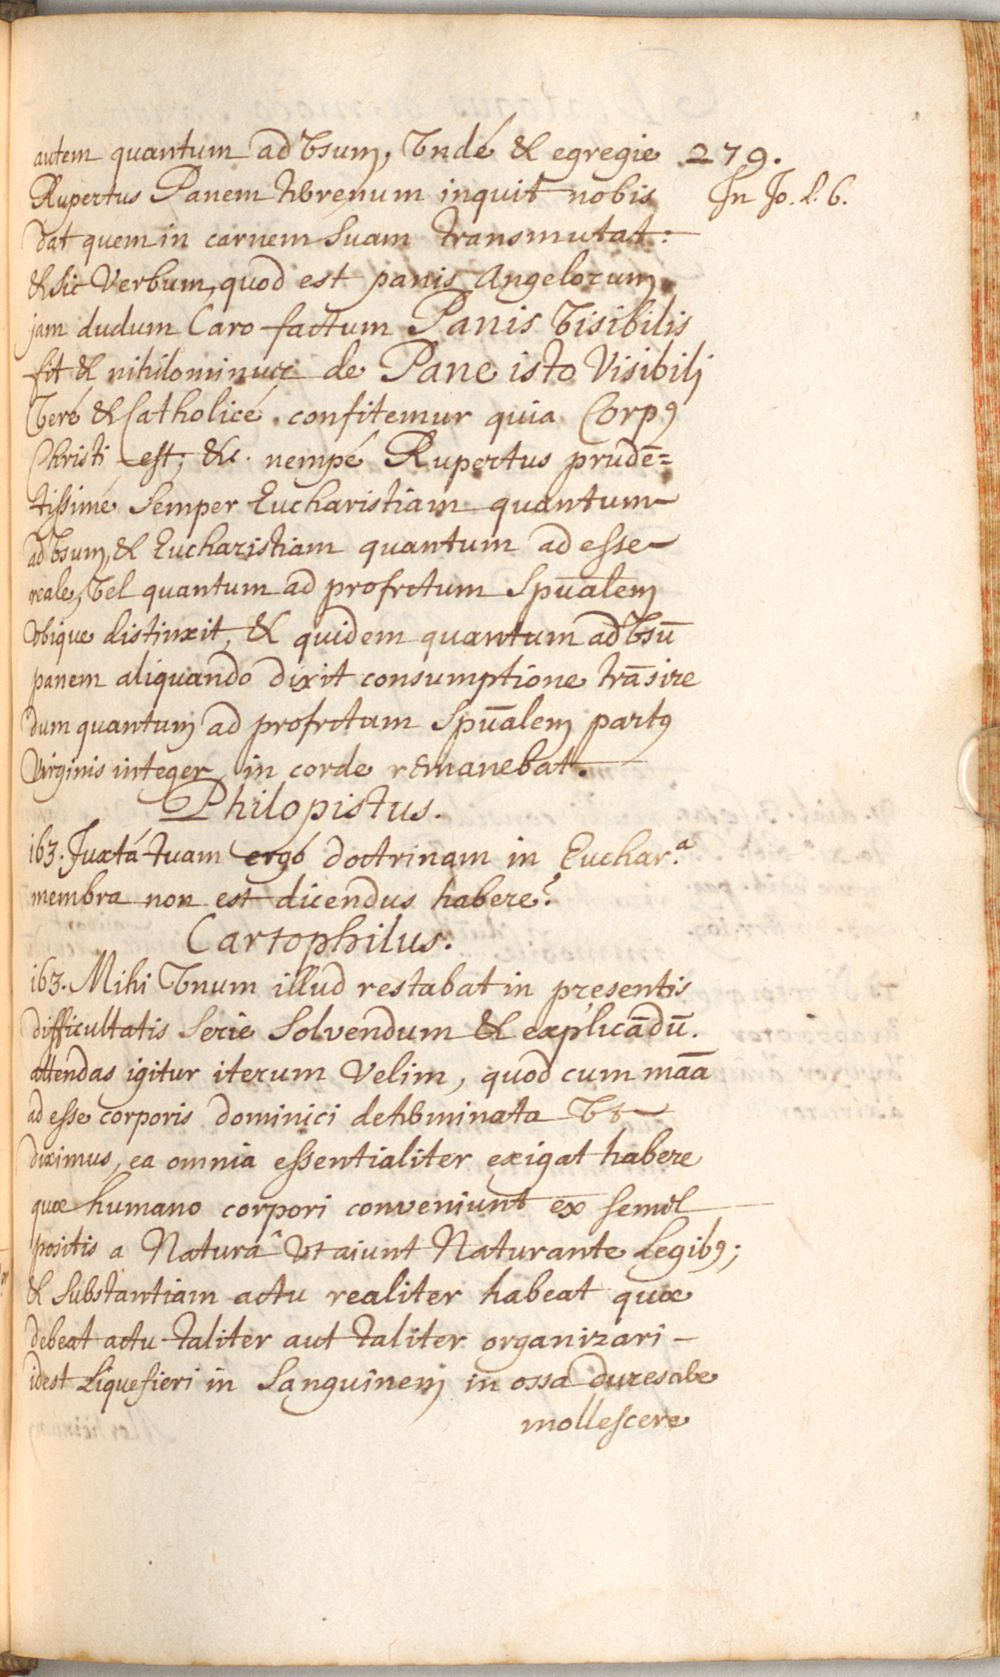 autem quantum ad Vsum, Vndé & egregie 279.
Rupertus Panem terrenum inquit nobis In Jo. l. 6.
dat quem in carnem Suam transmutat:
& sic Verbum, quod est panis Angelorum
jam dudum Caro factum Panis Visibilis
fit & nihilominus de Pane isto Visibili
Veré & Catholicé confitemur quia Corpꝰ
Christi est, &c. nempé Rupertus prudē=
tissimé Semper Eucharistiam quantum
ad Vsum, & Eucharistiam quantum ad esse
reale, Vel quantum ad profectum Spūalem
Vbique distinxit, & quidem quantum ad Vsū
panem aliquando dixit consumptione trāsire
dum quantum ad profectum Spūalem partꝰ
Virginis integer in corde remanebat.
Philopistus.
163. Juxtá tuam ergó doctrinam in Euchar.ª
membra non est dicendus habere?
Cartophilus.
163. Mihi Vnum illud restabat in presentis
difficultatis Serie Solvendum & explicādū.
attendas igitur iterum Velim, quod cum māa
ad esse corporis dominici determinata Vt
diximus, ea omnia essentialiter exigat habere
quæ humano corpori conveniunt ex semel
positis a Naturâ Vt aiunt Naturante Legibꝰ;
& Substantiam actu realiter habeat quæ
debeat actu taliter aut taliter organizari
idest Liquefieri in Sanguinem in ossa durescere
mollescere